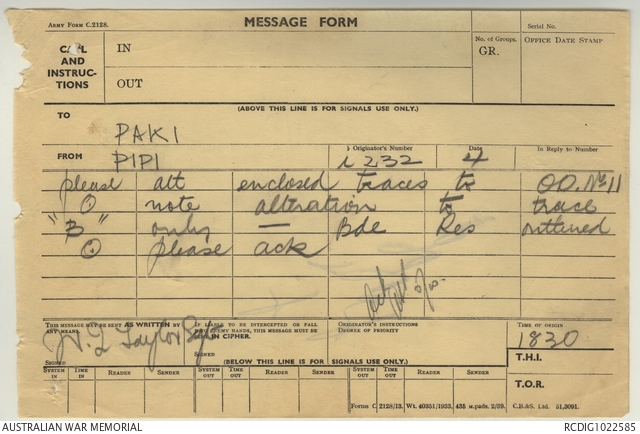 ARMY FORM C.2128.
MESSAGE FORM
Serial No.
CALL AND INSTRUC-TIONS
IN
OUT
No. of Groups.
GR.
OFFICE DATE STAMP
(ABOVE THIS LINE IS FOR SIGNALS USE ONLY.)
TO
PAKI
FROM
PIPI
Originator's Number
232
Date
4
In Reply to Number
please att enclosed traces to OO. No 11
⊙ note alteration to trace
"B" only — Bde Res outlined
⊙ please ack
THIS MESSAGE MAY BE SENT AS WRITTEN BY ANY MEANS.
IF LIABLE TO BE INTERCEPTED OR FALL INTO ENEMY HANDS, THIS MESSAGE MUST BE SENT IN CIPHER.
ORIGINATOR'S INSTRUCTIONS
DEGREE OF PRIORITY
TIME OF ORIGIN
1830
Taylor
SIGNED
SIGNED
T.H.I.
(BELOW THIS LINE IS FOR SIGNALS USE ONLY.)
SYSTEM IN
TIME IN
READER
SENDER
SYSTEM OUT
TIME OUT
READER
SENDER
SYSTEM OUT
TIME OUT
READER
SENDER
T.O.R.
Forms C.2128/13. Wt. 40351/1933. 435 m.pads. 2/39.
C.B.&S. Ltd. 51,3091.
AUSTRALIAN WAR MEMORIAL
RCDIG1022585